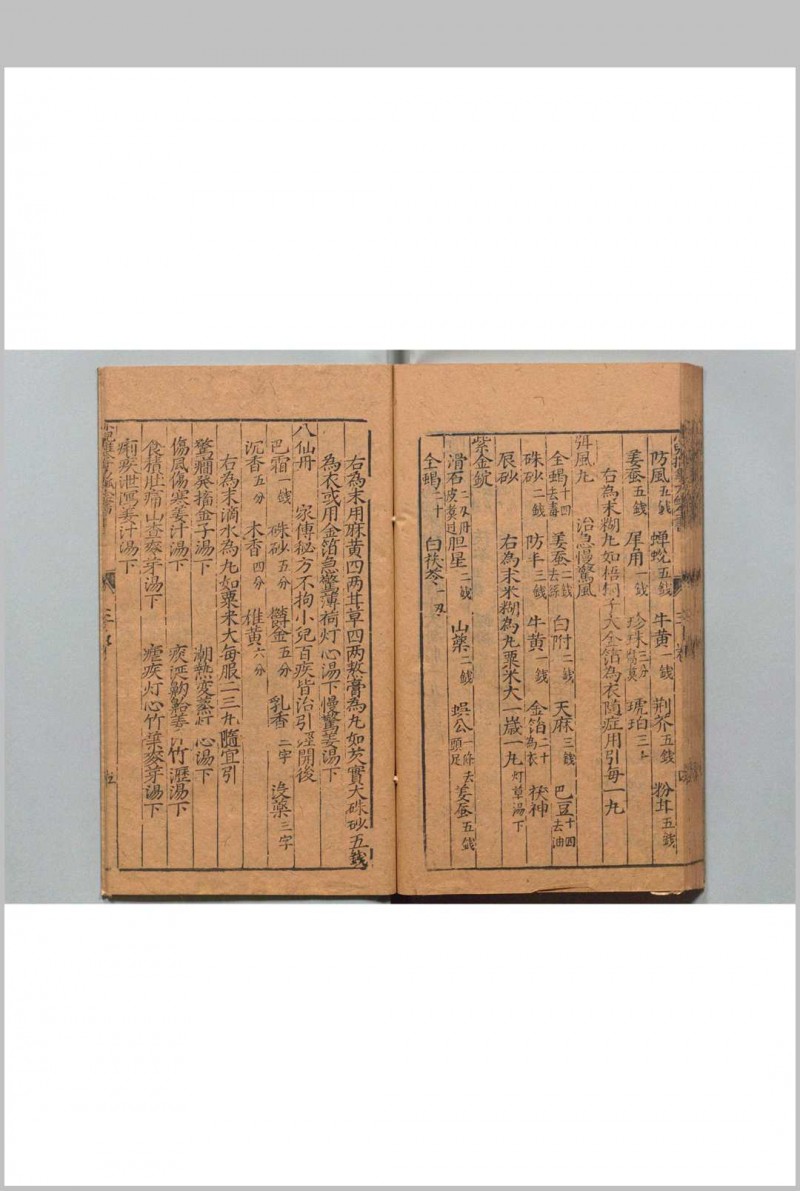 防風五錢 蟬蛻五錢 牛黃一錢 荊芥五錢 粉甘五錢
姜蚕五錢 犀角一錢 珍珠三分 琥珀三
右為末糊九如梧桐子大金箔為衣隨症用引每一九
風九 治急慢驚風
全蝎十四去毒 姜蚕二錢去絲 白附二錢 天麻三錢 巴豆十四去油
硃砂二錢 防丰三錢 牛黃一錢 金箔二十為衣 茯神
辰砂 右為末米糊為九粟米大一歲一九灯草湯下
紫金錠
滑石 胆星二錢 山藥二錢 蜈公一條去頭足 姜蚕五錢
全蝎二十 白茯苓一
右為末用麻黃四两甘草四两熬膏為九如芡實大硃砂五錢
為衣或用金箔急驚薄荷灯心湯下慢驚姜湯下
八仙丹 家傳秘方不拘小兒百疾皆治引經開後
巴霜一錢 硃砂五分 欝金五分 乳香二字 沒藥三字
沉香五分 木香四分 雄黃六分
右為末滴水為九如粟米大每服二三九隨宜引
驚癎 金子湯下 潮熱変蒸灯心湯下
傷風傷寒姜汁湯下 痰涎 姜竹瀝湯下
食積肚痛山查麥芽湯下 瘧疾灯心竹葉麥芽湯下
痢疾泄瀉姜汁湯下